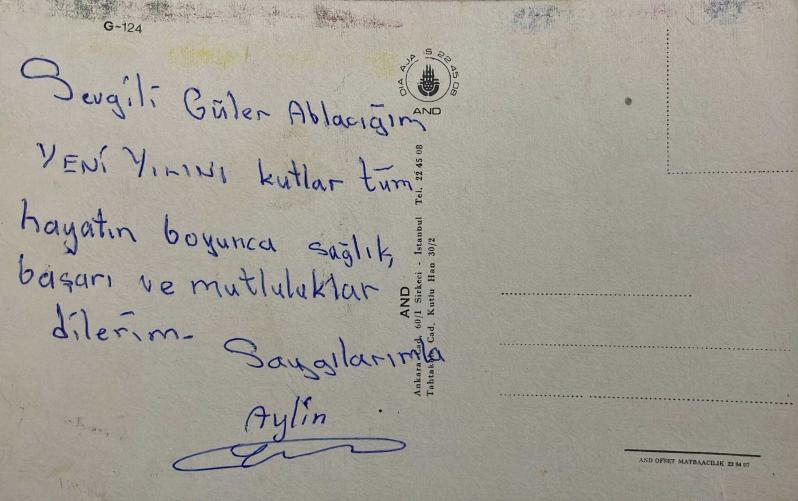 G-124
Sevgili Güler Ablacığım
YENİ YILINI kutlar tüm
hayatın boyunca sağlık,
başarı ve mutluluklar
dilerim-
Saygılarımla
Aylin
DIA AJANS 22 45 08
AND
AND
Ankara Cad. 60/1 Sirkeci - İstanbul Tel. 22 45 08
Tahtakale Cad. Kutlu Han 30/2
AND OFSET MATBAACILIK 22 84 07